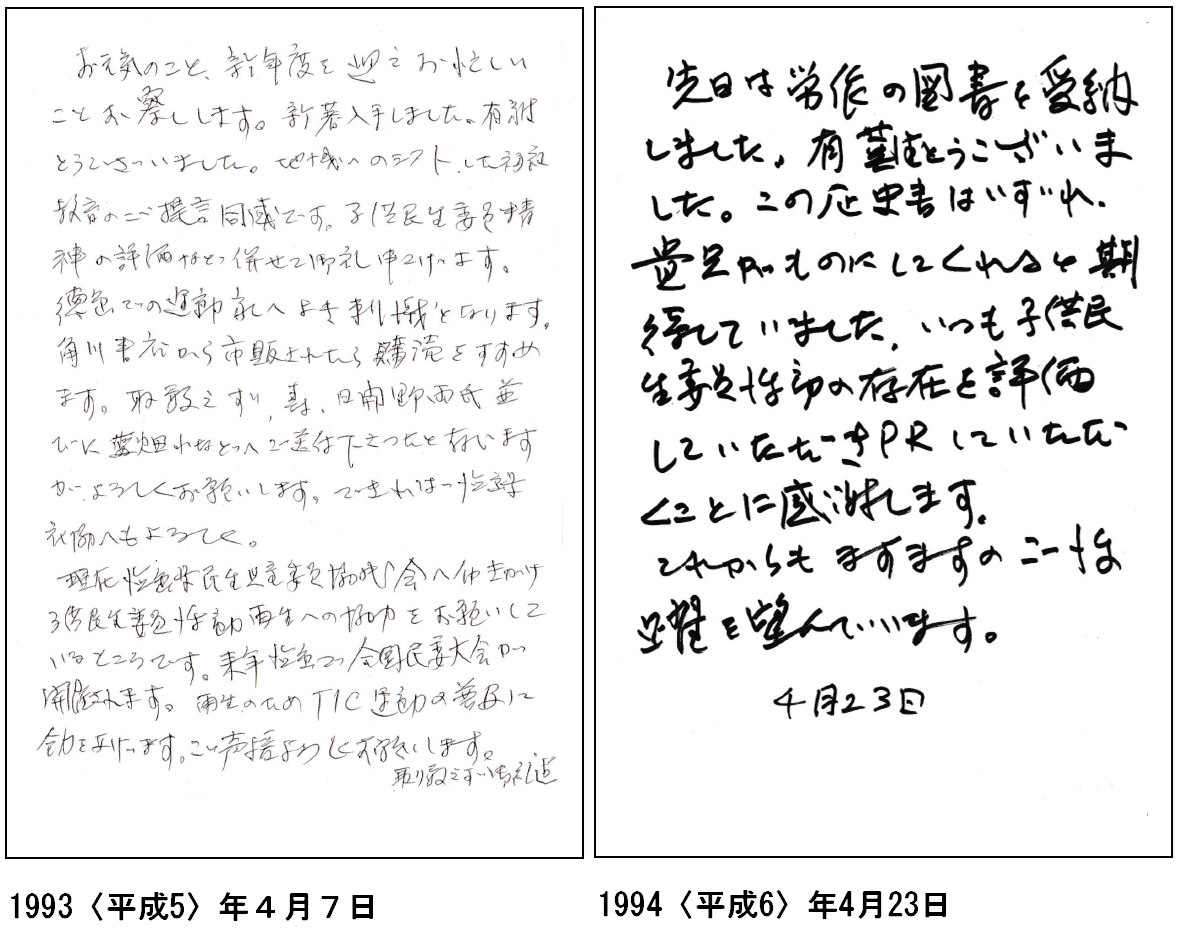 お元気のこと、新年度を迎えお忙しい
ことお察しします。新著入手しました。有難
とうございました。地域へのシフトした福祉
教育のご提言同感です。子供民生委員精
神の評価など併せて御礼申上げます。
徳島での運動家へよき刺激となります。
角川書店から市販されたら購読をすすめ
ます。取敢えずり、日開野西氏並
びに などへご送付下さったと存じます
が、よろしくお願いします。できれば
へもよろしく。
現在徳島県民生児童委員協議会へ仕かけ
子供民生委員活動再生への協力をお願いして
いるところです。来年徳島で全国民委大会が
開催されます。再生のためTIC運動の普及に
全力を上げます。ご声援よろしくお願いします。
取り敢えず御礼迄
1993〈平成5〉年４月７日
先日は労作の図書を受納
しました。有難とうございま
した。この歴史書はいずれ、
豊かなものにしてくれると期
待していました。いつも子供民
生委員活動の存在を評価
していただきPRしていただ
くことに感謝します。
これからもますますのご活
躍を望んでいます。
4月23日
1994〈平成6〉年4月23日